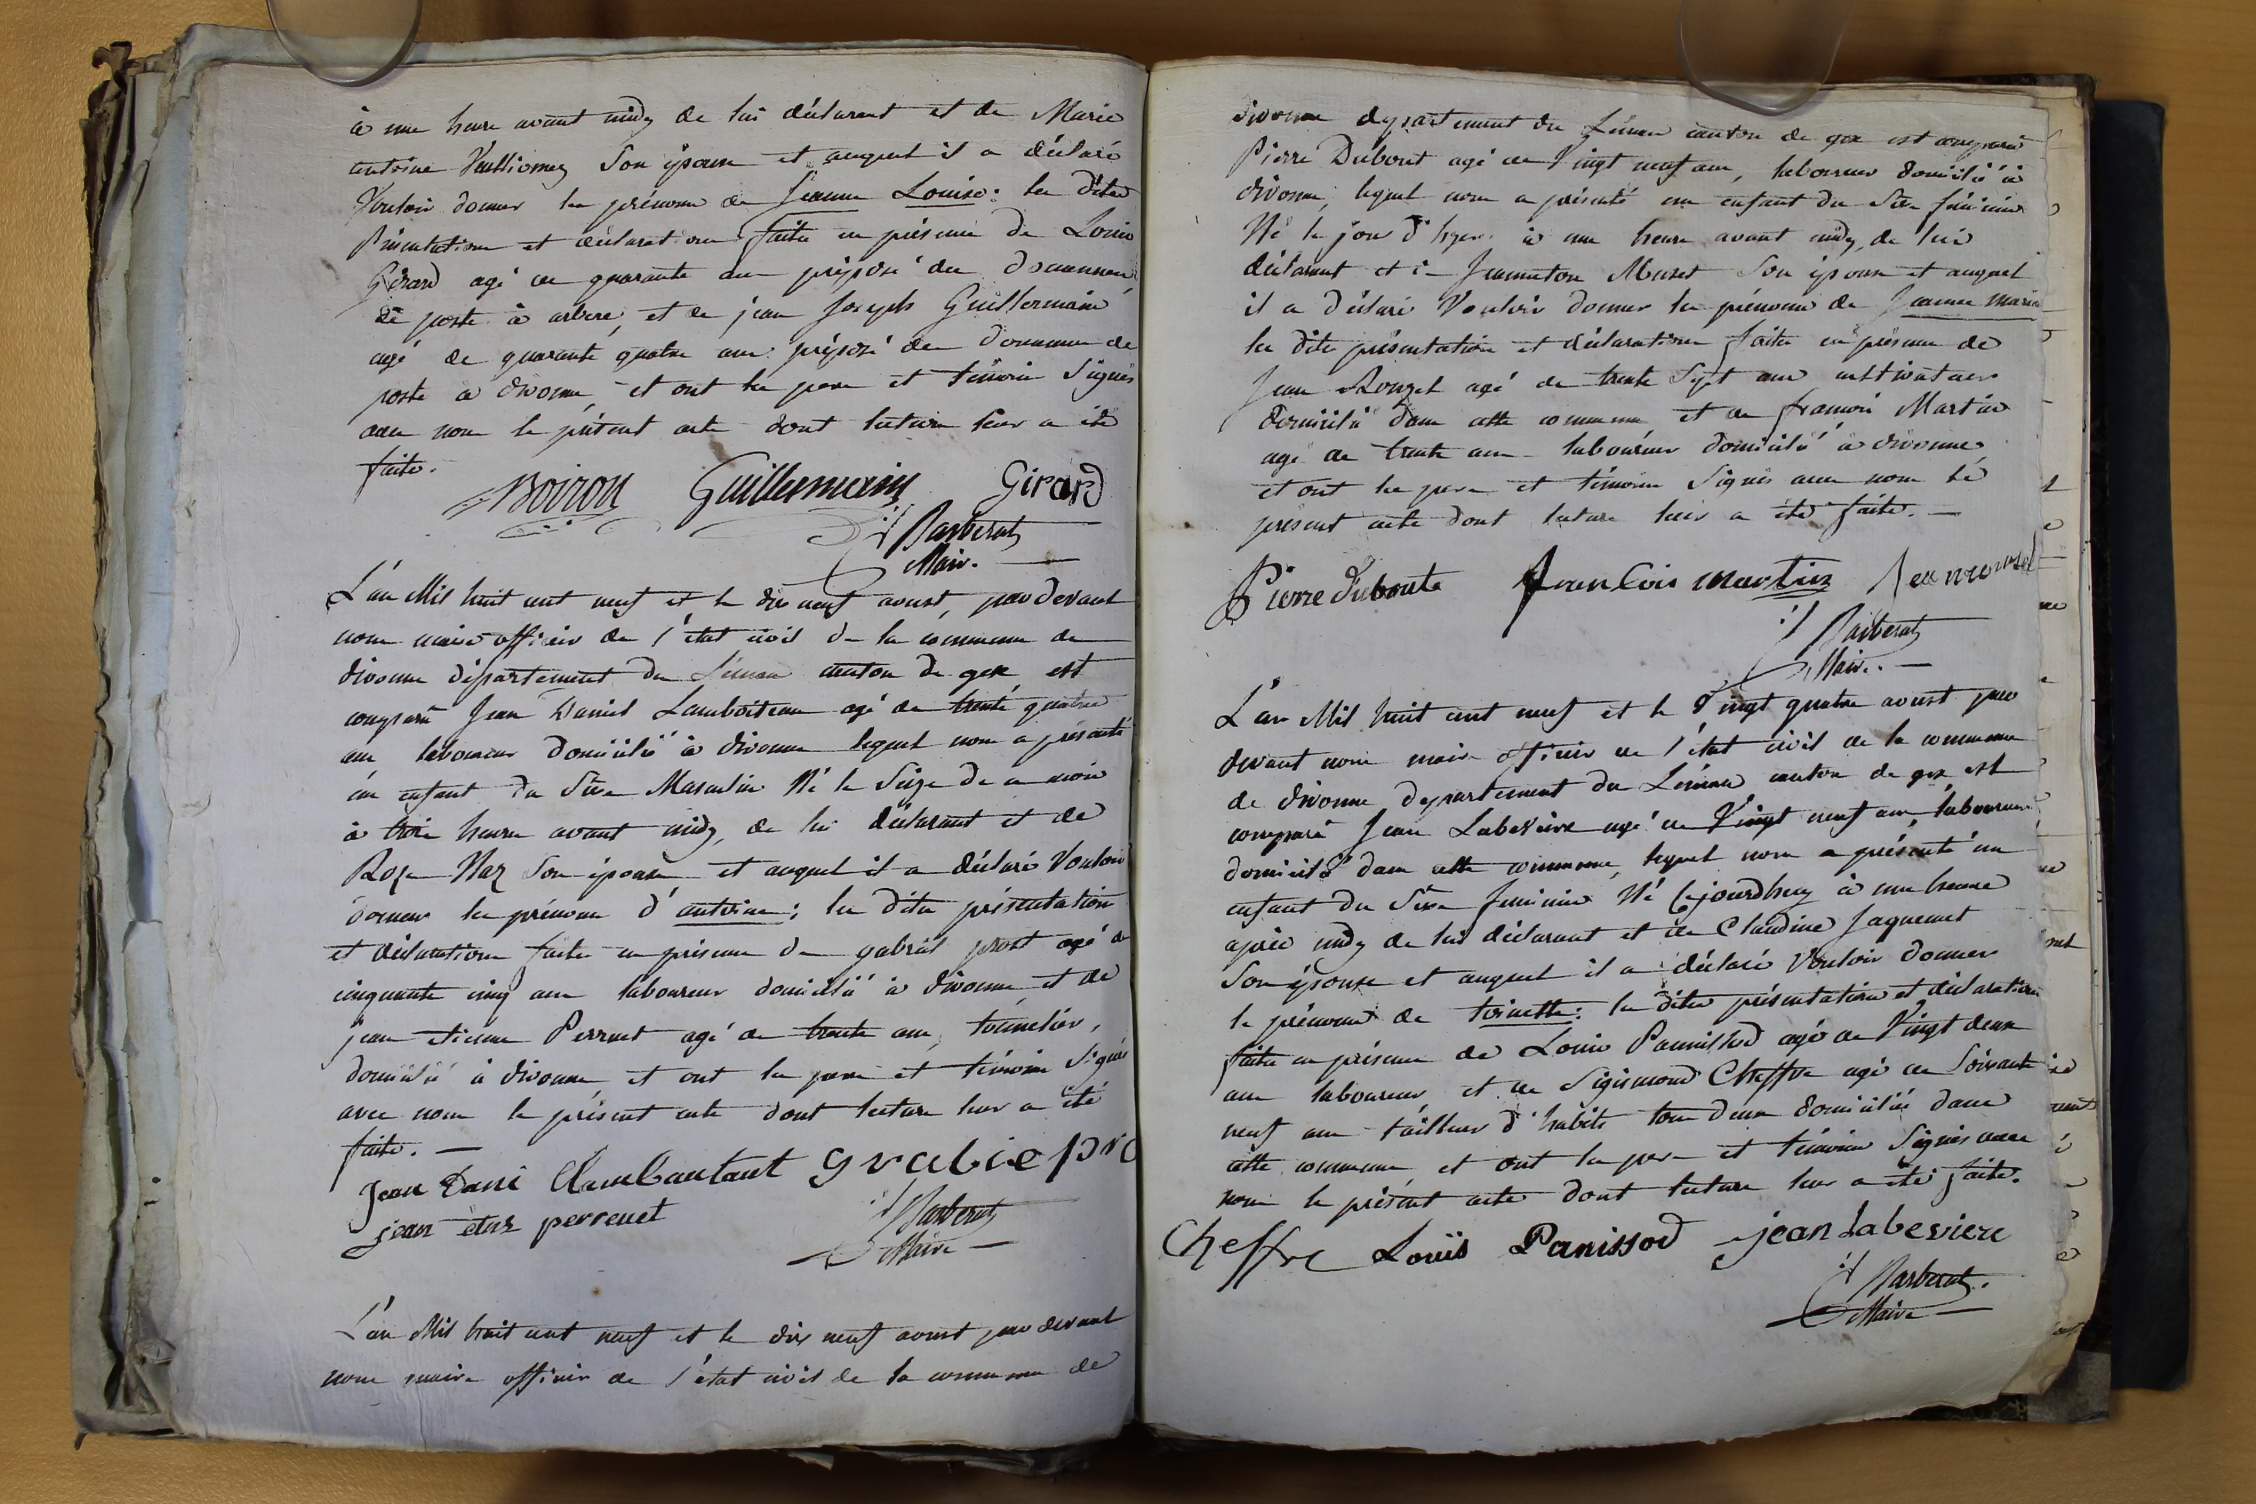 à une heure avant midy de lui déclarant et de Marie
antoine Vuillionnez Son épouse et auquel il a déclaré
Vouloir donner le prénom de Jeanne Louise: la dite
Présentation et déclaration faite en présence de Louis
Girard agé de quarante ans préposé des douannes
de poste à arbere, et de jean Joseph Guillermain
agé de quarante quatre ans préposé des douannes de
poste à divonne, et ont le pere et témoins Signés
avec nous le présent acte dont lecture leur a été
faite.
Boiron Guillermain Girard
Barberat
Maire.
L'an Mil huit cent neuf et le dix neuf aoust, pardevant
nous maire officier de l'état civil de la commune de
divonne département du Léman canton de gex est
comparu Jean Daniel Lamboiteau agé de trente quatre
ans laboureur domicilié à divonne lequel nous a présenté
un enfant du Séxe Masculin Né le Seize de ce mois
à trois heures avant midy, de lui déclarant et de
Roze Naz Son épouse et auquel il a déclaré Vouloir
donner le prénom d'antoine; la dite présentation
et déclaration faite en présence de gabriel prost agé de
cinquante cinq ans laboureur domicilié à divonne et de
jean etienne Perrenet agé de trente ans, tounelier,
domicilié à divonne et ont le pere et témoins Signés
avec nous le présent acte dont lecture leur a été
faite. —
Jean Dani Clambautant grabie pro
jean etns perrenet
Barberat
Maire —
L'an Mil huit cent neuf et le dix neuf aoust par devant
nous maire officier de l'état civil de la commune de
divonne departement du Léman canton de gex est comparu
Pierre Dubout agé de Vingt neuf ans, laboureur domicilié à
divonne, lequel nous a présenté un enfant du Séxe féminin
Né le jour d'hyer à une heure avant midy, de lui
déclarant et de Jeanneton Muret Son épouse et auquel
il a déclaré Vouloir donner le prénom de Jeanne Marie
la dite présentation et déclaration faite en présence de
Jean Rouzel agé de trente Sept ans cultivateur
domicilié dans cette commune et de françois Martin
agé de trente ans laboureur domicilié à divonne
et ont le pere et témoins Signés avec nous le
présent acte dont lecture leur a été faite. —
Pierre duboute francois martin Jean rousel
Barberat
Maire. —
L'an Mil huit cent neuf et le Vingt quatre aoust par
devant nous maire officier de l'état civil de la commune
de divonne departement du Léman canton de gex est
comparu Jean Labeviere agé de Vingt neuf ans laboureur
domicilié dans cette commune, lequel nous a présenté un
enfant du Séxe féminin Né Cejourdhuy à une heure
après midy de lui déclarant et de Claudine Jaquemet
Son épouse et auquel il a déclaré Vouloir donner
le prénom de toinette: la dite présentation et déclaration
faite en présence de Louis Pannissod agé de Vingt deux
ans laboureur, et de Sigismond Cheffre agé de Soixante
neuf ans tailleur d'habits tous deux domiciliés dans
cette commune et ont le pere et témoins Signés avec
nous le présent acte dont lecture leur a été faite.
Cheffre Louïs Panissod jean Labeviere
Barberat.
Maire —